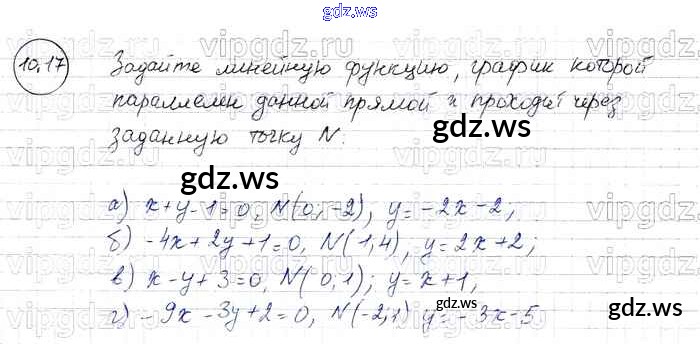 gdz.ws
10.17 Задайте линейную функцию, график которой
параллелен данной прямой и проходит через
gdz.ws
заданную точку N.
gdz.ws
а) x+y-1=0, N(0;-2), y=-2x-2;
б) -4x+2y+1=0, N(1,4), y=2x+2;
gdz.ws
в) x-y+3=0, N(0,1); y=x+1,
г) -9x-3y+2=0, N(-2,1) y=-3x-5
gdz.ws
gdz.ws